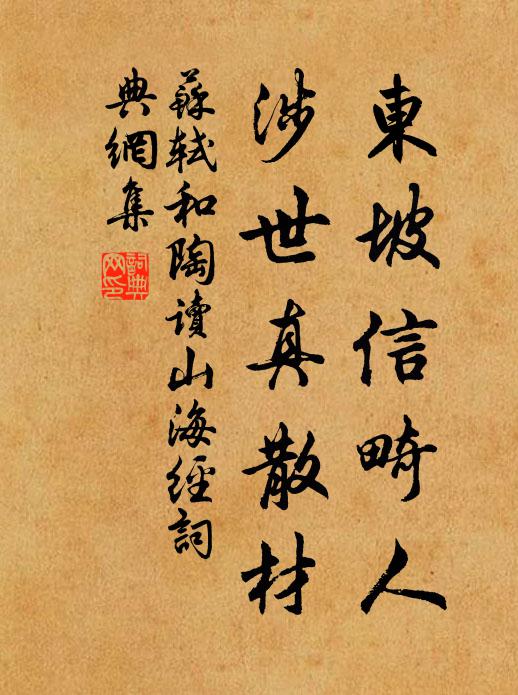 東坡信畸人
涉世真散材
蘇軾和陶讀山海經詞
典網集
詞典
网印